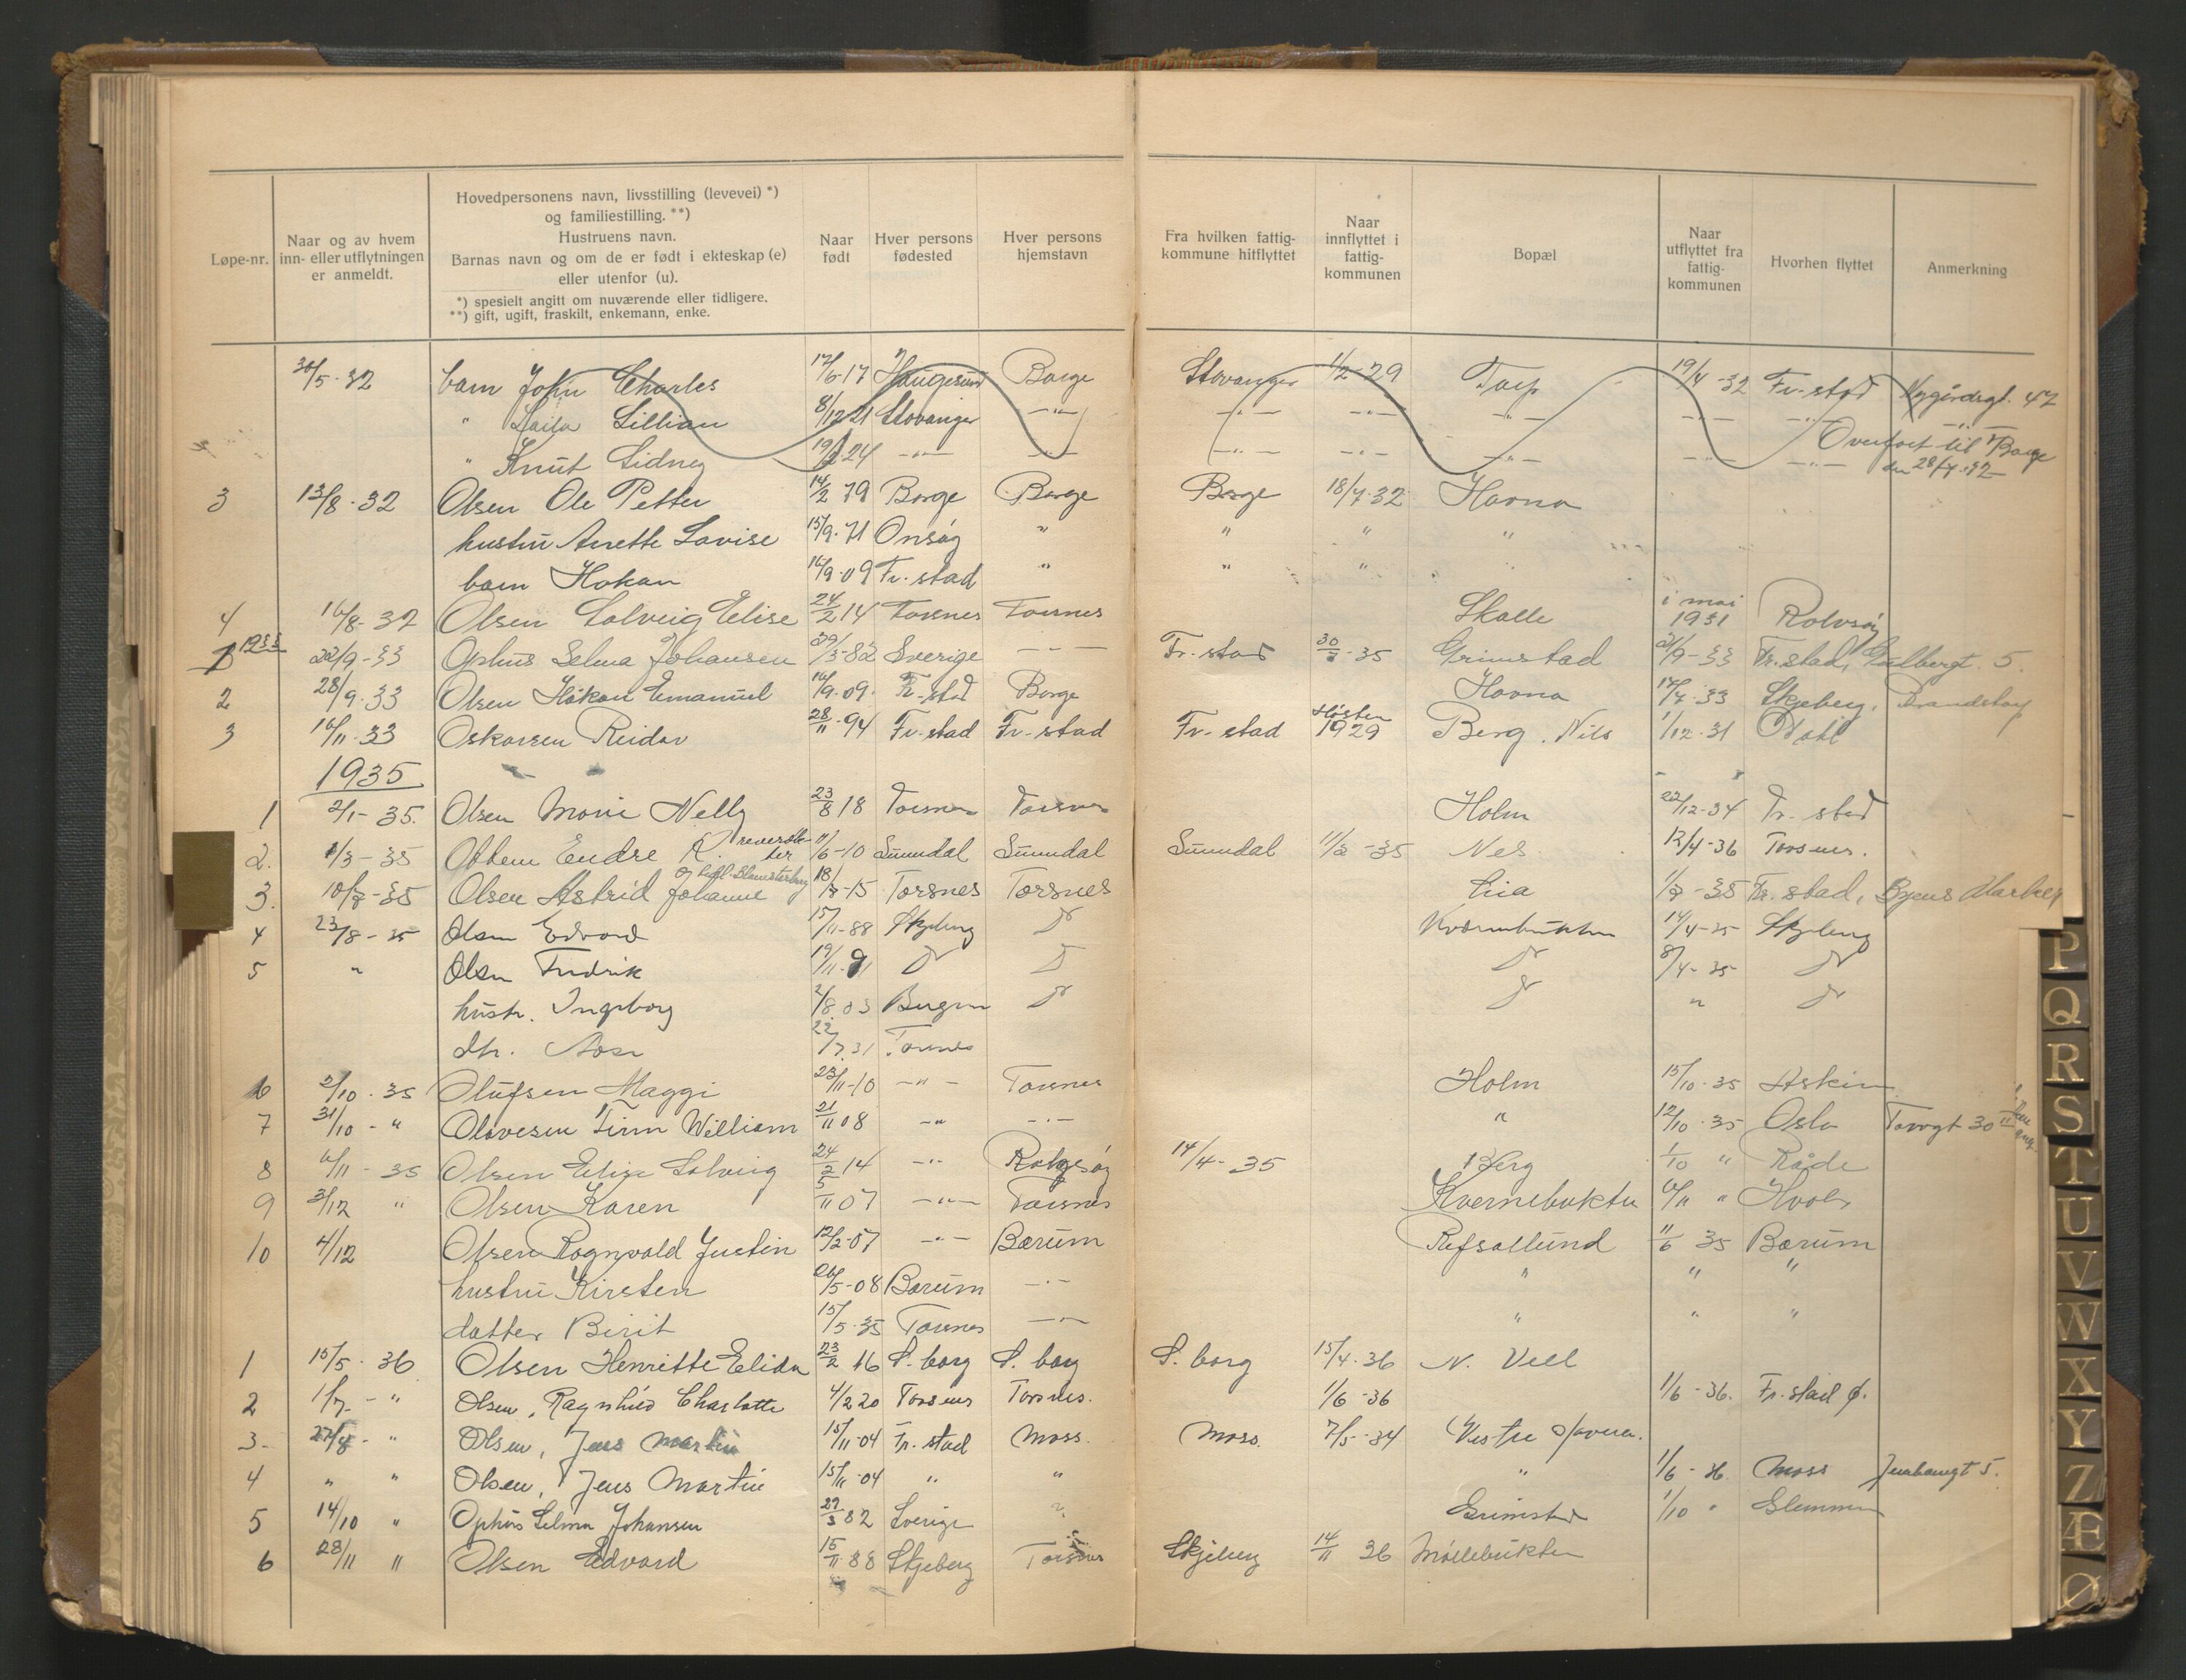 Løpe-nr.
Naar og av hvem
inn- eller utflytningen
er anmeldt.
Hovedpersonens navn, livsstilling (levevei) *)
og familiestilling. **)
Hustruens navn.
Barnas navn og om de er født i ekteskap (e)
eller utenfor (u).
*) spesielt angitt om nuværende eller tidligere.
**) gift, ugift, fraskilt, enkemann, enke.
Naar
født
Hver persons
fødested
Hver persons
hjemstavn
Fra hvilken fattig-
kommune hitflyttet
Naar
innflyttet i
fattig-
kommunen
Bopæl
Naar
utflyttet fra
fattig-
kommunen
Hvorhen flyttet
Anmerkning
30/5-32 barn John Charles 12/6-17 Haugesund Borge Stavanger 1/2-29 Torp 19/4-32 Fr.stad Nygårdsgt. 47
" Laila Lillian 8/12 21 Stavanger -"- -"- -"- -"- -"- -"- -"-
" Knut Sidney 24 -"- -"- -"- -"- -"- -"- -"- Overført til Borge
den 28/4-32
3 13/8-32 Olsen Ole Petter 14/2 79 Borge Borge Borge 18/7-32 Havna
hustru Anette Lovise 15/9-71 Onsøy " " " "
barn Hokan 16/9-09 Fr.stad " " " "
4 16/8-32 Olsen Solveig Elise 24/2 14 Torsnes Torsnes Skalle i mai
1931 Rolvsøy
1933
1 22/9-33 Ophus Selma Johansen 29/3-82 Sverige - - - Fr.stad 30/3-35 Grimstad 21/9-33 Fr.stad, Gulbergt. 5.
2 28/9-33 Olsen Håkon Emanuel 16/9-09. Fr.stad Borge Havna 17/7-33 Skjeberg,
3 16/11-33 Oskarsen Reidar 28/11-94 Fr-stad Fr-stad Fr-stad Høsten
1929 Berg. Nils 1/12-31
1935
1 2/1-35. Olsen Marie Nelly 23/8 18 Torsnes Torsnes Holm 22/12-34 Fr.stad
2. 1/3-35 Ottem Endre K. 11/6-10 Sunndal Sunndal Sunndal 11/2-35 Nes 12/4-36 Torsnes.
3. 10/7-35 Olsen Astrid Johanne 18/7-15 Torsnes Torsnes Lia 1/7-35 Fr.stad, Byens Marker
4 23/8-35 Olsen Edvard 15/11-88 Skjeberg Do Kvernebukten 14/4-35 Skjeberg
5 " Olsen Fredrik 19/11-91 Do Do Do 8/4-35 Do
hustr. Ingeborg 2/8 03 Bergen Do Do " Do
dtr. Aase 22/7 31 Torsnes
6 2/10-35 Olufsen Maggi 23/11-10 -"- Torsnes Holm 15/10-35 Askim
7 31/10-" Olavesen Finn William 21/11 08 -"- -"- " 12/10-35 Oslo Torvgt 30 II
8 6/11-35 Olsen Elise Solveig 24/2 14 -"- Rolvsøy 14/4-35 Berg 1/10 " Råde
9 3/12 " Olsen Karen 5/11 07 -"- Torsnes Kvernebukten 6/11 " Hvaler
10 4/12 Olsen Ragnvald Justin 12/2-07 -"- Bærum Refsallund 11/6 35 Bærum
hustru Kirsten 26/5-08 Bærum -"- " " "
datter Birit 15/5-35 Torsnes -"- " " "
1 15/5-36 Olsen Henriette Elida 23/2 16 S. borg S. borg S. borg 15/4-36 N. Vell
2 1/7-" Olsen, Ragnhild Charlotte 4/2 20 Torsnes Torsnes. 1/6-36 1/6-36. Fr.stad ø.
3- 27/8-" Olsen, Jens Martin 15/11-04 Fr.stad Moss. Moss. 7/5-34 Vestre
4 " " Olsen, Jens Martin 15/11-04 " " " 1/6-36. Moss Jernbanegt 5.
5 14/10 " Ophus Selma Johansen 29/3 82 Sverige ? Grimstad 1/10 " Glemmen
6 28/11 " Olsen Edvard 15/11 88 Skjeberg Torsnes Skjeberg 14/11 36 Møllebukten
P
Q
R
S
T
U
V
W
X
Y
Z
Æ
Ø